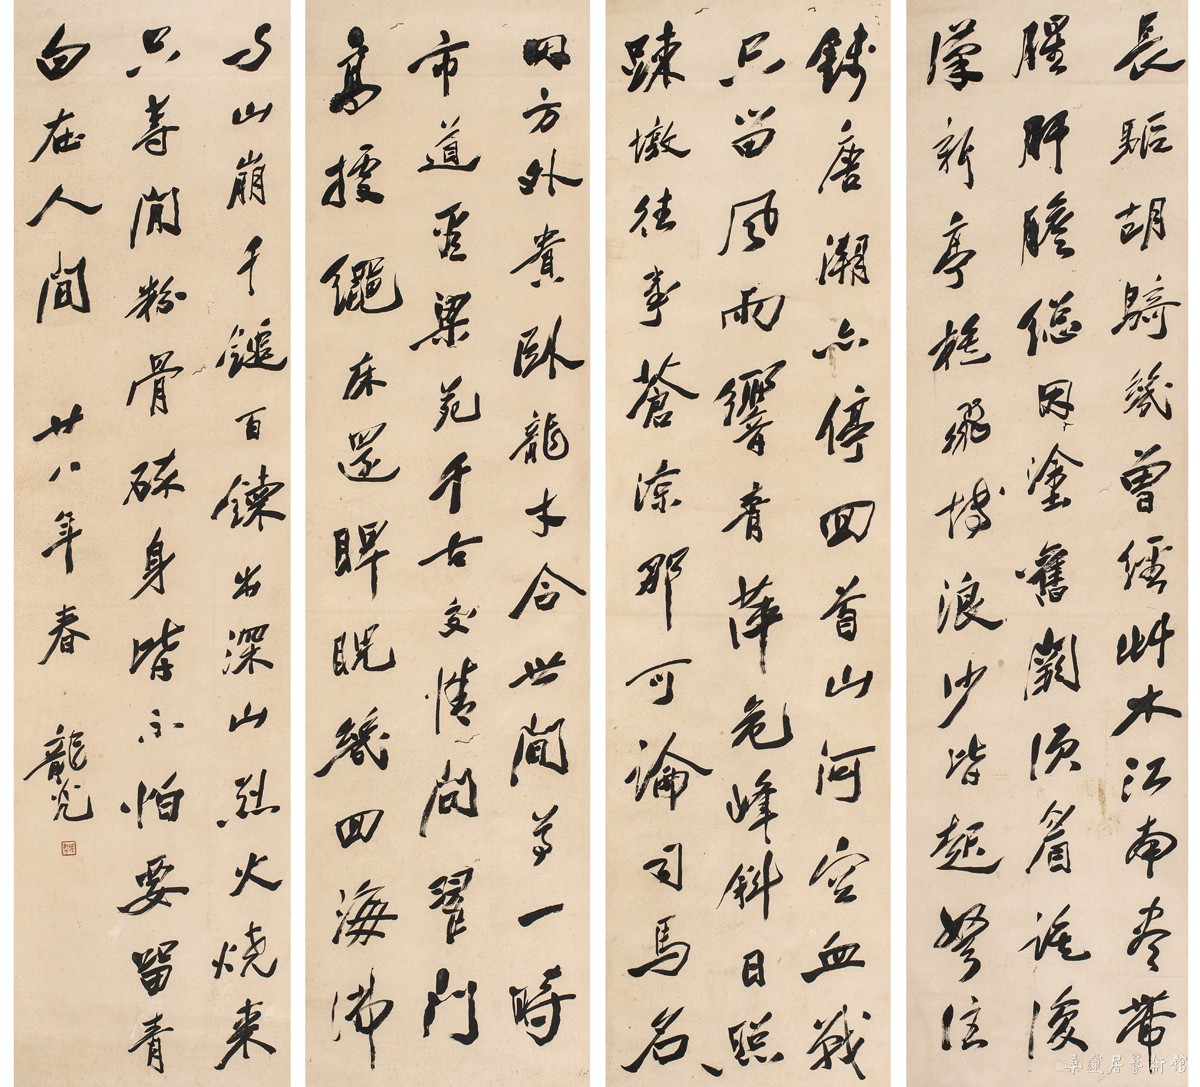 長驅胡騎幾曾經艸木江南盡帶
腥肝膽總因塗舊闕須眉誰復
新亭椎飛博浪沙皆起弩注
錢唐潮亦停回首山河空血戰
只留風雨響青萍危峰斜日照
踈墩往事蒼涼那可論司馬名
因方外貴臥龍才合世間尊一時
市道梁苑千古交情問翟門
高據繩床還睥睨幾回海沸
与山崩千鎚百鍊出深山烈火燒來
只等閒粉骨碎身皆不怕要留青
白在人間 廿八年春 龍光
桑蓮居藝術館